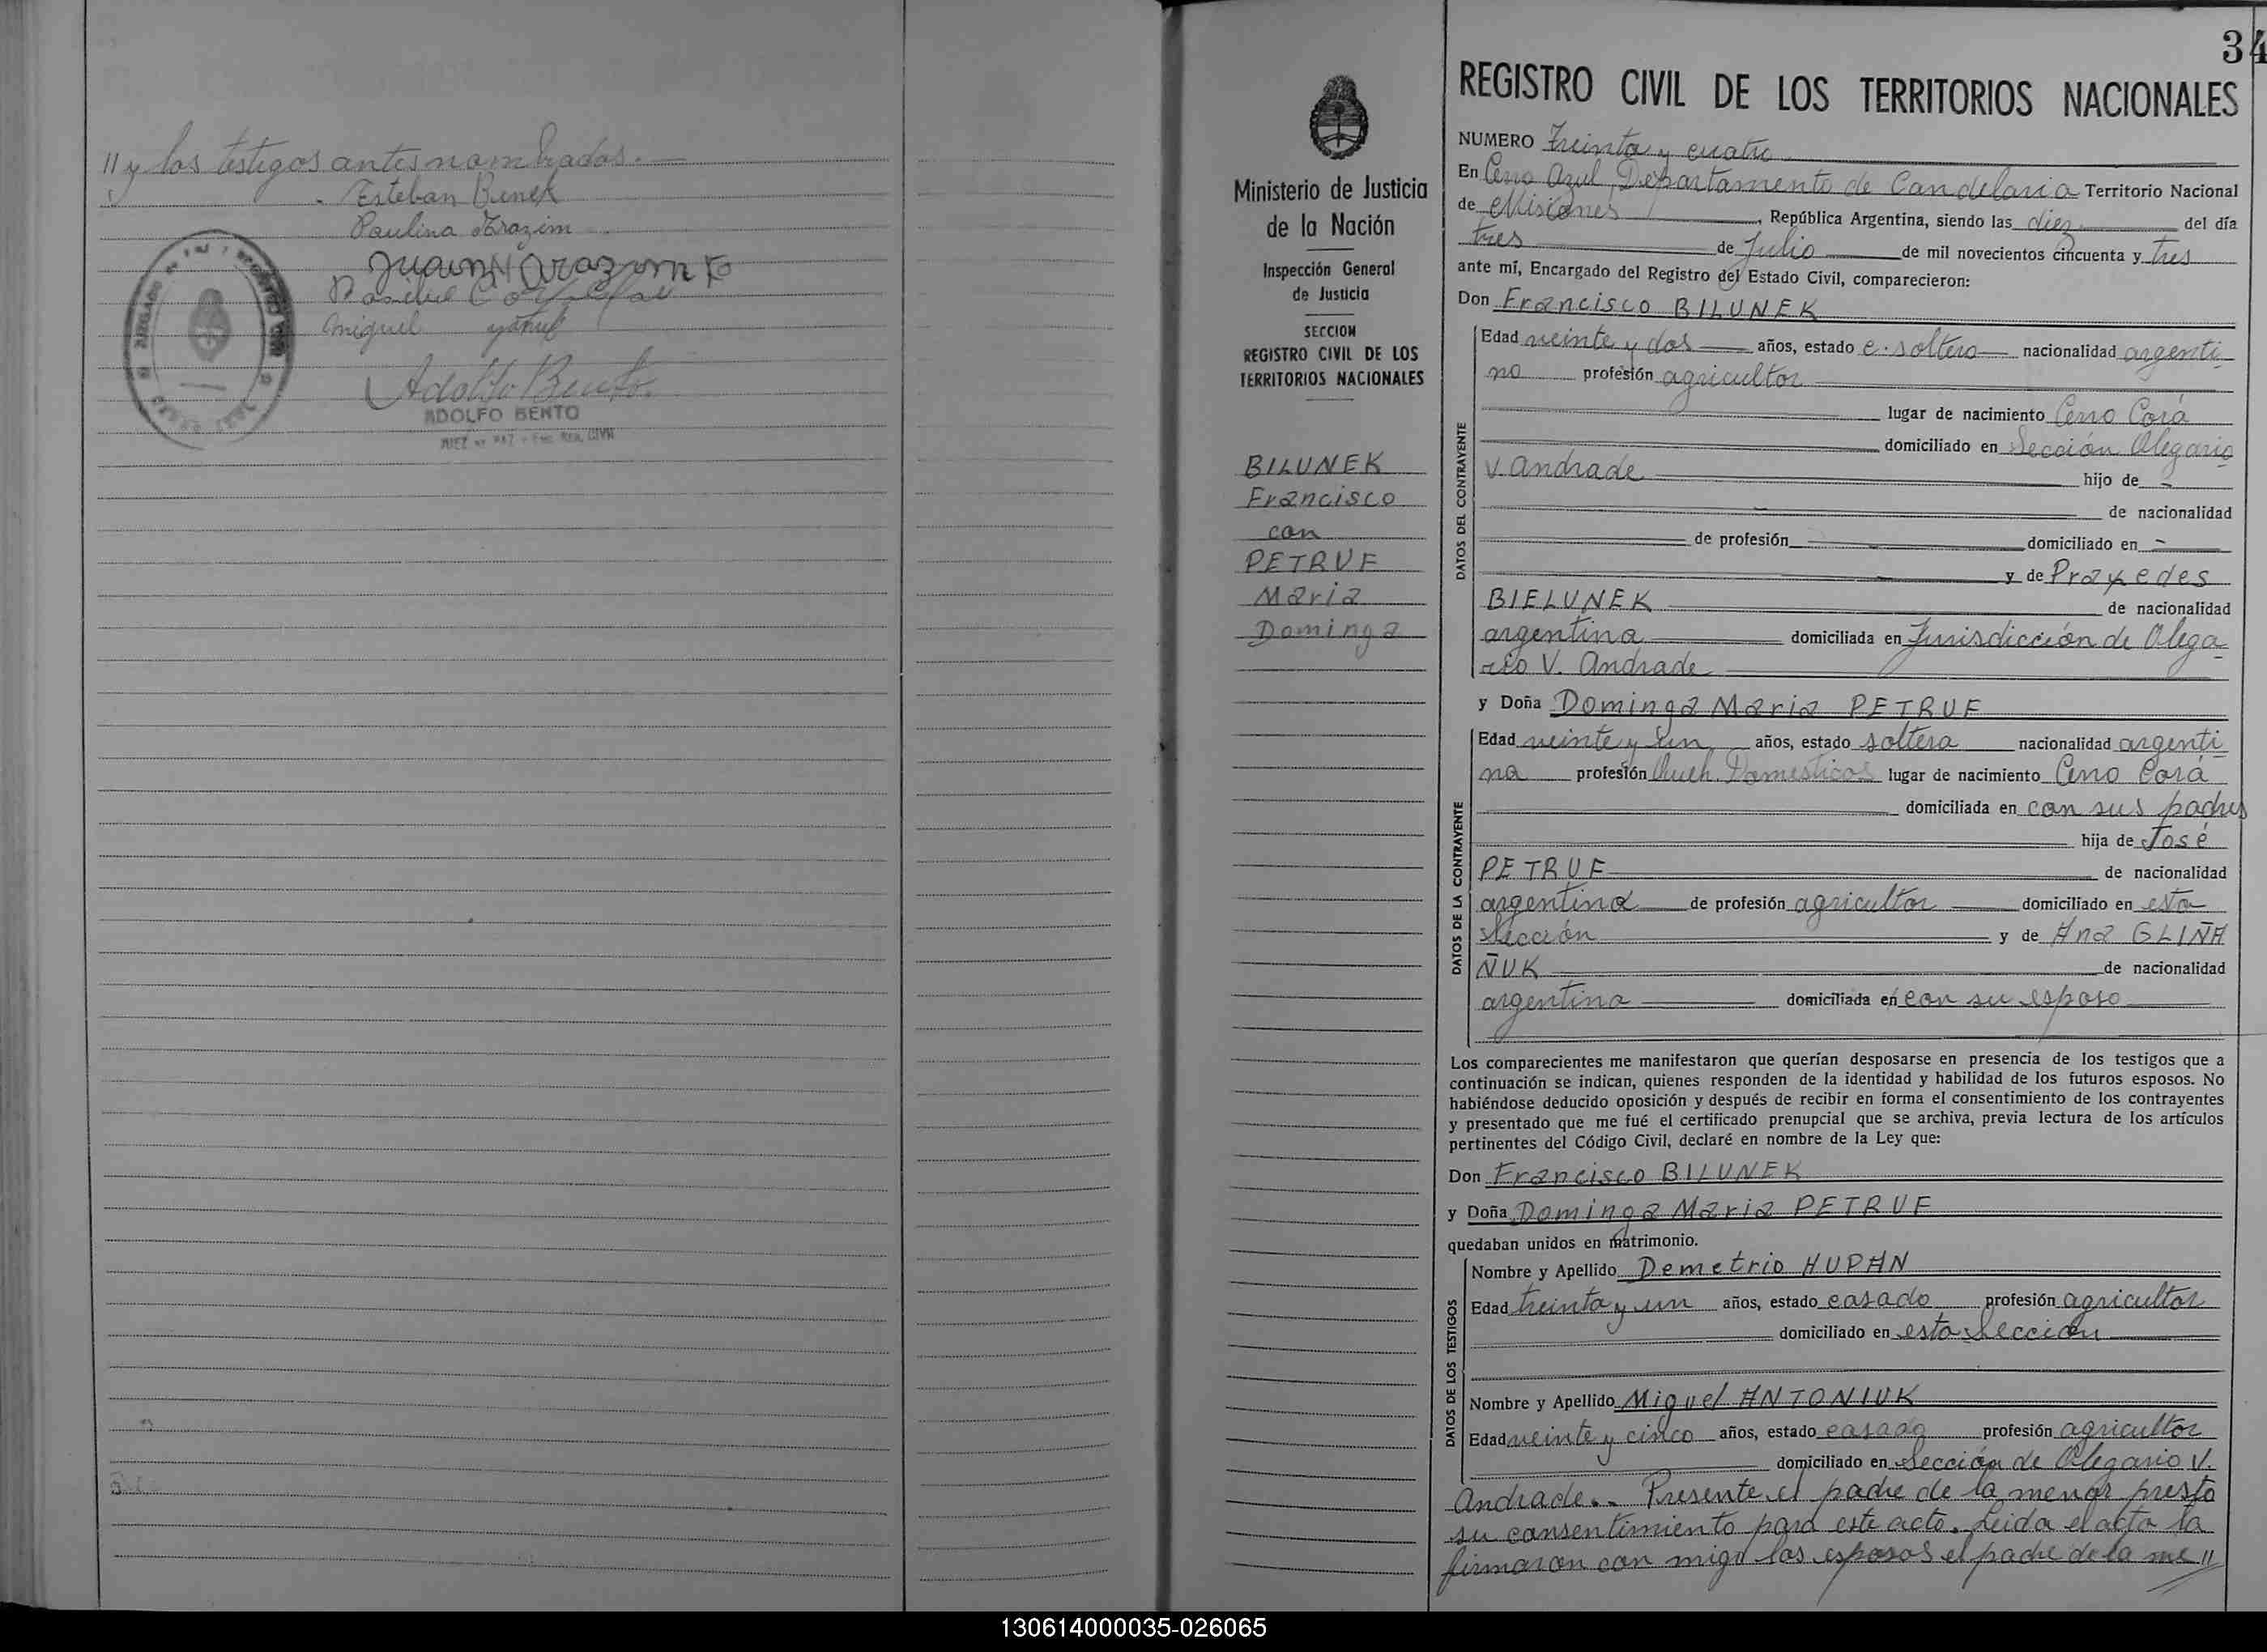 // y los testigos antes nombrados.
Esteban Bunek
Paulina Harazim
Juan Harazim
Miguel
Adolfo Bento
ADOLFO BENTO
JUEZ DE PAZ - Enc. REG. CIVIL
34
REGISTRO CIVIL DE LOS TERRITORIOS NACIONALES
Ministerio de Justicia
de la Nación
Inspección General
de Justicia
SECCION
REGISTRO CIVIL DE LOS
TERRITORIOS NACIONALES
BILUNEK
Francisco
con
PETRUF
Maria
Dominga
NUMERO Treinta y cuatro
En Cerro Azul, Departamento de Candelaria Territorio Nacional
de Misiones, República Argentina, siendo las diez del día
tres de Julio de mil novecientos cincuenta y tres
ante mí, Encargado del Registro del Estado Civil, comparecieron:
Don Francisco BILUNEK
DATOS DEL CONTRAYENTE
Edad veinte y dos años, estado e. soltero nacionalidad argenti-
no profesión agricultor
lugar de nacimiento Cerro Corá
domiciliado en Sección Olegario
V. Andrade hijo de -
de nacionalidad
de profesión domiciliado en -
y de Praxedes
BIELUNEK de nacionalidad
argentina domiciliada en Jurisdicción de Olega-
rio V. Andrade
y Doña Dominga Maria PETRUF
DATOS DE LA CONTRAYENTE
Edad veinte y un años, estado soltera nacionalidad argenti-
na profesión Queh. Domesticos lugar de nacimiento Cerro Corá
domiciliada en con sus padres
hija de José
PETRUF de nacionalidad
argentina de profesión agricultor domiciliado en esta
Sección y de Ana GLIÑA
ÑUK de nacionalidad
argentina domiciliada en con su esposo
Los comparecientes me manifestaron que querían desposarse en presencia de los testigos que a
continuación se indican, quienes responden de la identidad y habilidad de los futuros esposos. No
habiéndose deducido oposición y después de recibir en forma el consentimiento de los contrayentes
y presentado que me fué el certificado prenupcial que se archiva, previa lectura de los artículos
pertinentes del Código Civil, declaré en nombre de la Ley que:
Don Francisco BILUNEK
y Doña Dominga Maria PETRUF
quedaban unidos en matrimonio.
DATOS DE LOS TESTIGOS
Nombre y Apellido Demetrio HUPAN
Edad treinta y un años, estado casado profesión agricultor
domiciliado en esta Sección
Nombre y Apellido Miguel ANTONIUK
Edad veinte y cinco años, estado casado profesión agricultor
domiciliado en Sección de Olegario V.
Andrade.- Presente el padre de la menor presto
su consentimiento para este acto. Leida el acta la
firmaron con migo los esposos el padre de la me //
130614000035-026065